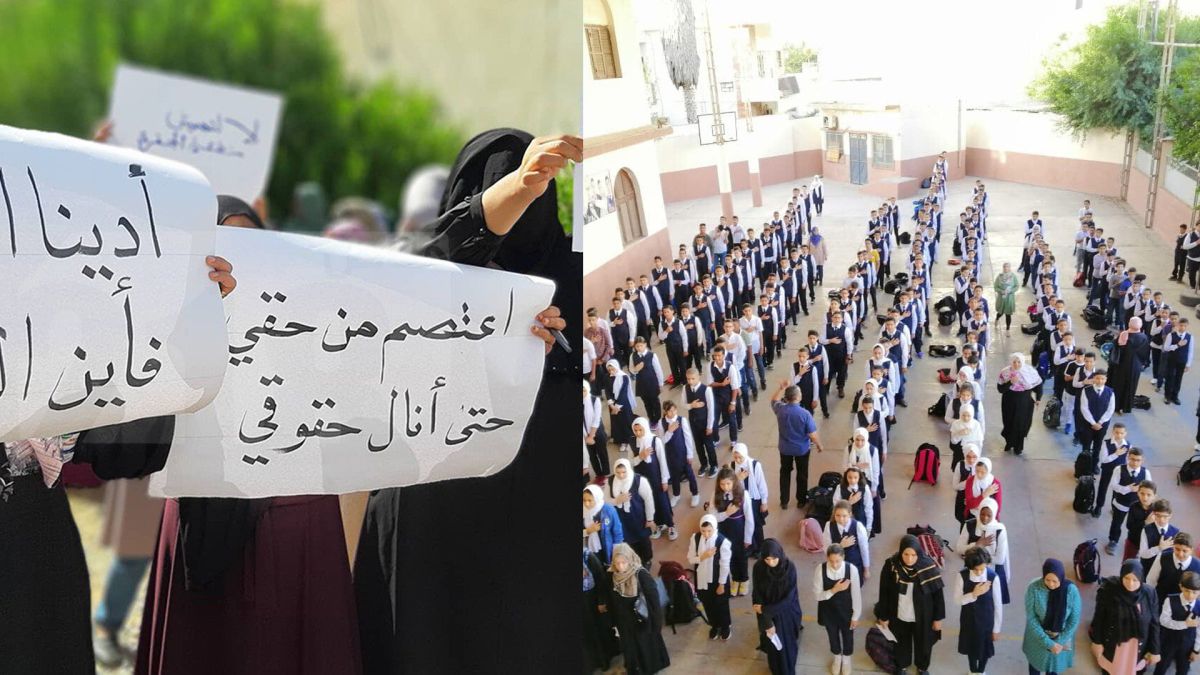 لا لتصييس
أدينا ا
فأين ا
اعتصم من حقي
حتى أنال حقوقي